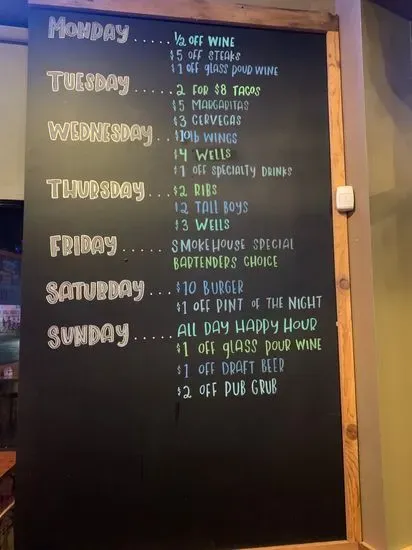 MONDAY ..... ½ OFF WINE
$5 OFF STEAKS
$1 OFF glass pour WINE
TUESDAY ..... 2 FOR $8 TACOS
$5 MARGARITAS
$3 CERVEGAS
WEDNESDAY ... $10lb WINGS
$4 WELLS
$1 OFF SPECIALTY DRINKS
THURSDAY .... $2 RIBS
$2 TALL BOYS
$3 WELLS
FRIDAY ..... SMOKEHOUSE SPECIAL
BARTENDERS CHOICE
SATURDAY .... $10 BURGER
$1 OFF PINT OF THE NIGHT
SUNDAY ..... ALL DAY HAPPY HOUR
$1 OFF glass pour WINE
$1 OFF DRAFT BEER
$2 OFF PUB GRUB